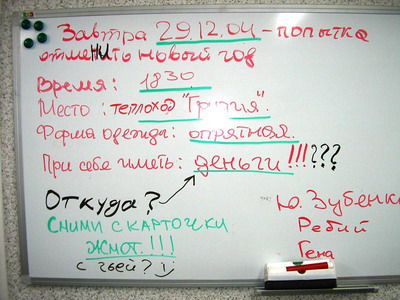 Завтра 29.12.04 - попытка
отменить новый год
Время: 1830
Место: теплоход "Грузия".
Форма одежды: опрятная.
При себе иметь: деньги!!!???
Откуда?
Сними с карточки
Жмот.!!!
с чьей?
Ю. Зубенко
Ребий
Гена